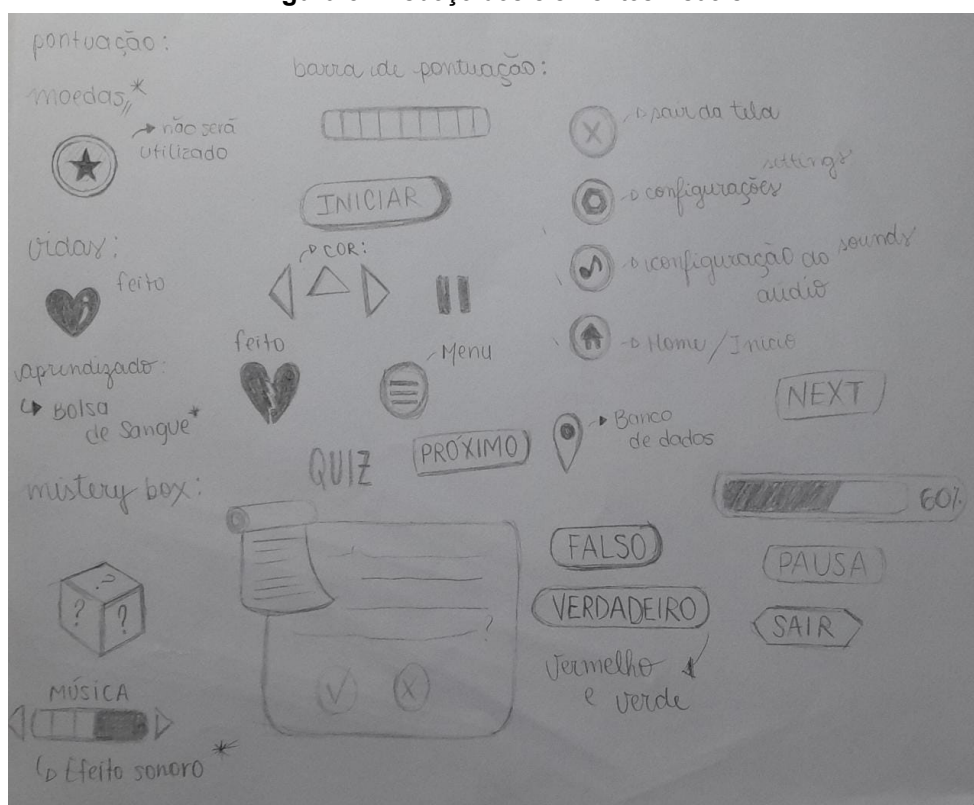 pontuação:
moedas,, *
não será
utilizado
vidas:
feito
aprendizado:
Bolsa
de Sangue *
mistery box:
?
? ?
MÚSICA
Efeito sonoro *
barra de pontuação:
INICIAR
COR:
feito
Menu
QUIZ
PRÓXIMO
?
sair da tela
settings
configurações
sounds
configuração do
audio
Home / Início
Banco
de dados
NEXT
60%
FALSO
VERDADEIRO
Vermelho
e verde
PAUSA
SAIR